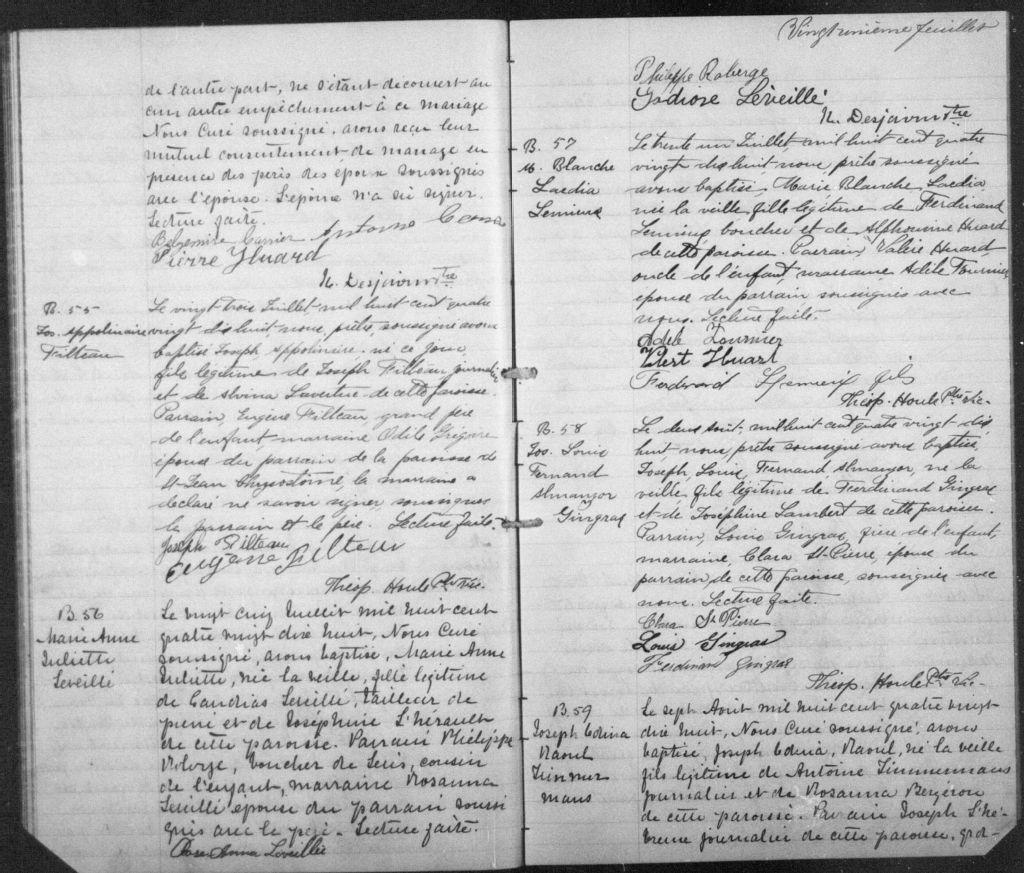 de l'autre part, ne s'étant découvert au
cun autre empêchement à ce mariage
Nous Curé soussigné, avons reçu leur
mutuel consentement de mariage en
présence des pères des époux soussignés
avec l'épouse. L'époux n'a su signer.
Lecture faite.
Carrier Antoine
Pierre Huard
N. Desjardins Ptre
B. 55
Jos. Appolinaire
Filteau
Le vingt trois Juillet mil huit cent quatre
vingt dix huit, nous, prêtre, soussigné avons
baptisé Joseph, Appolinaire, né ce jour,
fils légitime de Joseph Filteau, journalier
et de Alvina Lavertue de cette paroisse.
Parrain, Eugène Filteau, grand père
de l'enfant, marraine Odile Grégoire
épouse du parrain de la paroisse de
St-Jean Chrysostôme, la marraine a
déclaré ne savoir signer, soussignés
le parrain et le père. Lecture faite.
Joseph Filteau
Eugène Filteau
Théop. Houle Ptre Vic.
B. 56
Marie Anne
Juliette
Leveillé
Le vingt cinq Juillet mil huit cent
quatre vingt dix huit, Nous Curé
soussigné, avons baptisé, Marie Anne
Juliette, née la veille, fille légitime
de Leveillé, tailleur de
pierre et de Joséphine L'hérault
de cette paroisse. Parrain Philippe
Roberge, boucher de Levis, cousin
de l'enfant, marraine Rosanna
Leveillé épouse du parrain soussi
gnés avec le père. Lecture faite.
Rose Anna Leveillée
Vingtunième feuillet
Philippe Roberge
Léveillé
N. Desjardins Ptre
B. 57
M. Blanche
Laedia
Lemieux
Le trente un Juillet mil huit cent quatre
vingt dix huit, nous, prêtre soussigné
avons baptisé, Marie Blanche Laedia,
née la veille, fille légitime de Ferdinand
Lemieux boucher et de Alphonsine Huard
de cette paroisse. Parrain, Valère Huard,
oncle de l'enfant, marraine Adèle Fournier,
épouse du parrain soussignés avec
nous. Lecture faite.
Adele Fournier
Huart
Ferdinand Lemieux fils
Théop. Houle Ptre Vic.
B. 58
Jos. Louis
Fernand
Almanzor
Gingras
Le deux Août, mil huit cent quatre vingt dix
huit, nous, prêtre soussigné avons baptisé,
Joseph, Louis, Fernand Almanzor, né la
veille, fils légitime de Ferdinand Gingras
et de Joséphine Lambert de cette paroisse.
Parrain, Louis Gingras, frère de l'enfant,
marraine, Clara St-Pierre, épouse du
parrain, de cette paroisse, soussignés avec
nous. Lecture faite.
Clara St Pierre
Louis Gingras
Ferdinand Gingras
Théop. Houle Ptre Vic.
B. 59
Joseph Edina
Raoul
Timmer
mans
Le sept Août mil huit cent quatre vingt
dix huit, Nous Curé soussigné, avons
baptisé, Joseph Edina, Raoul, né la veille
fils légitime de Antoine Timmermans
journalier et de Rosanna Bergeron
de cette paroisse. Parrain Joseph L'hé-
breux journalier de cette paroisse, grd-